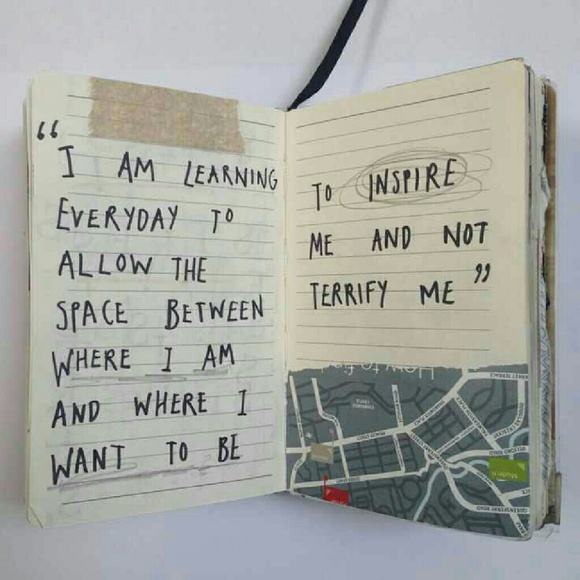 “I AM LEARNING
EVERYDAY TO
ALLOW THE
SPACE BETWEEN
WHERE I AM
AND WHERE I
WANT TO BE
TO INSPIRE
ME AND NOT
TERRIFY ME”
How to fi